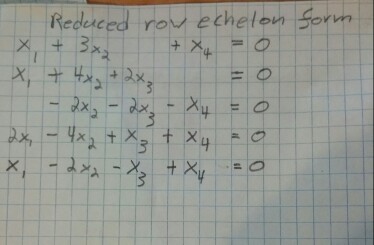 Reduced row echelon form
x₁ + 3x₂ + x₄ = 0
x₁ + 4x₂ + 2x₃ = 0
- 2x₂ - 2x₃ - x₄ = 0
2x₁ - 4x₂ + x₃ + x₄ = 0
x₁ - 2x₂ - x₃ + x₄ = 0